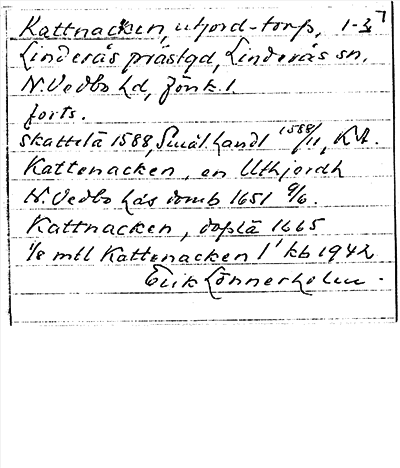 Kattnacken, utjord-torp, 1-3
Linderås prästgd, Linderås sn.
N. Vedbo hd, Jönk. l
forts.
skattelä 1588, Smål. handl 1588/11, KA.
Kattenacken, en Uthjordh
N. Vedbo häs domb 1651 9/6.
Kattnacken, doplä 1665
1/8 mtl Kattenacken 1' kb 1942
Erik Lönnerholm.